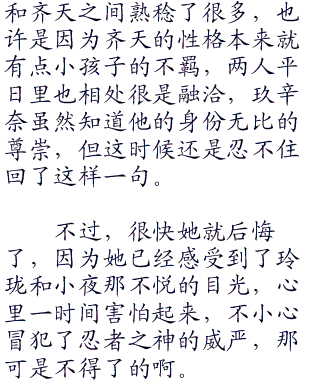 和齐天之间熟稔了很多，也
许是因为齐天的性格本来就
有点小孩子的不羁，两人平
日里也相处很是融洽，玖辛
奈虽然知道他的身份无比的
尊崇，但这时候还是忍不住
回了这样一句。
不过，很快她就后悔
了，因为她已经感受到了玲
珑和小夜那不悦的目光，心
里一时间害怕起来，不小心
冒犯了忍者之神的威严，那
可是不得了的啊。